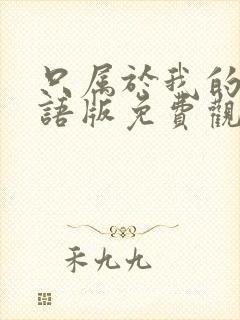 只属於我的
語版免費觀
禾九九